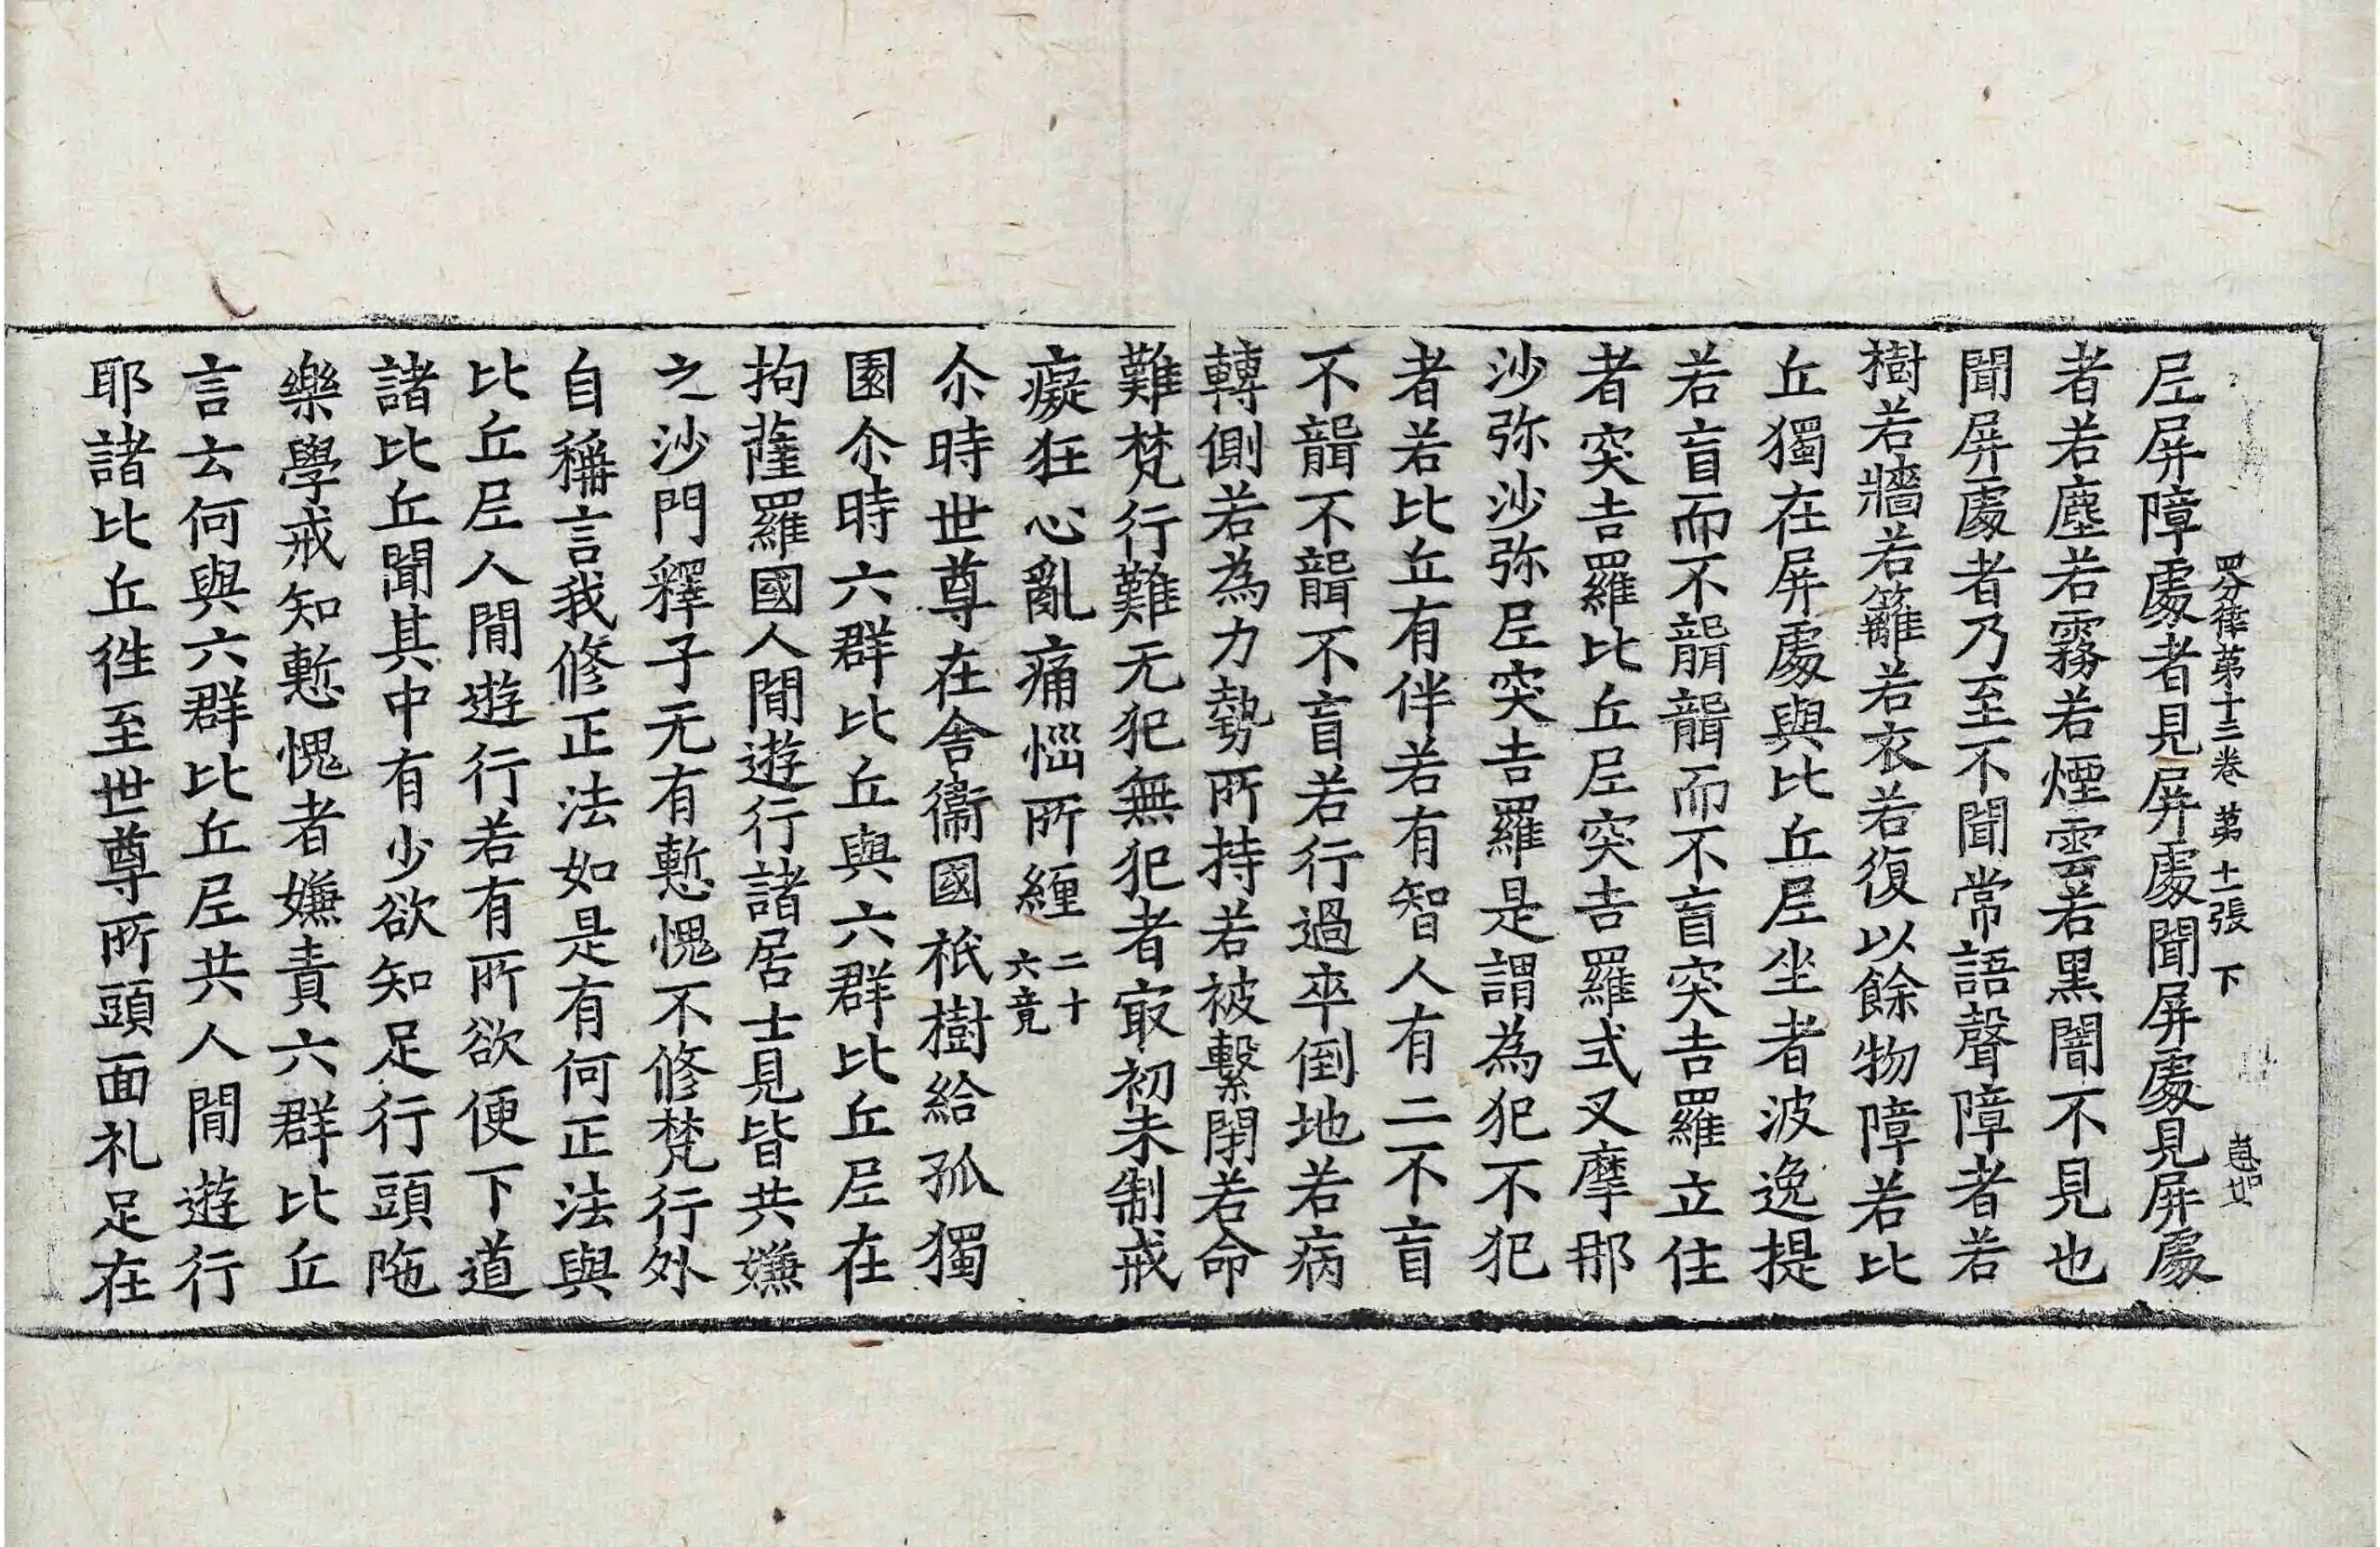 四分律第十三卷 第十一張 下
𡰱屏障處者見屏處聞屏處見屏處
者若塵若霧若煙雲若黑闇不見也
聞屏處者乃至不聞常語聲障者若
樹若牆若籬若衣若復以餘物障若比
丘獨在屏處與比丘𡰱坐者波逸提
若盲而不聾聾而不盲突吉羅立住
者突吉羅比丘𡰱突吉羅式叉摩那
沙弥沙弥𡰱突吉羅是謂為犯不犯
者若比丘有伴若有智人有二不盲
不聾不聾不盲若行過卒倒地若病
轉側若為力勢所持若被繫閉若命
難梵行難无犯無犯者㝡初未制戒
癡狂心亂痛惱所纏 二十六竟
尒時世尊在舍衞國祇樹給孤獨
園尒時六群比丘與六群比丘𡰱在
拘薩羅國人間遊行諸居士見皆共嫌
之沙門釋子无有慙愧不修梵行外
自稱言我修正法如是有何正法與
比丘𡰱人間遊行若有所欲便下道
諸比丘聞其中有少欲知足行頭陁
樂學戒知慙愧者嫌責六群比丘
言云何與六群比丘𡰱共人間遊行
耶諸比丘徃至世尊所頭面礼足在